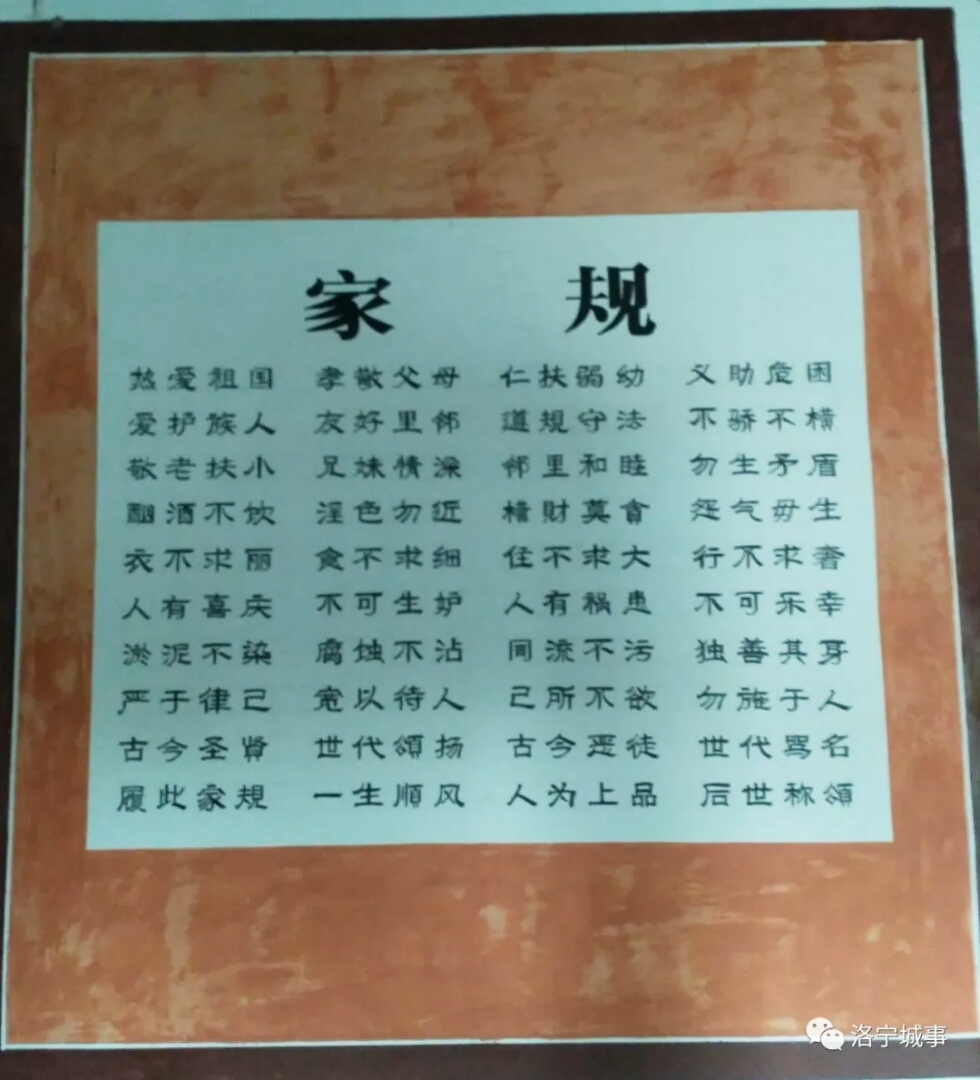 家 规
热爱祖国 孝敬父母 仁扶弱幼 义助危困
爱护族人 友好里邻 道规守法 不骄不横
敬老扶小 兄妹情深 邻里和睦 勿生矛盾
酗酒不饮 淫色勿近 横财莫贪 怨气毋生
衣不求丽 食不求细 住不求大 行不求奢
人有喜庆 不可生妒 人有祸患 不可乐幸
淤泥不染 腐蚀不沾 同流不污 独善其身
严于律己 宽以待人 己所不欲 勿施于人
古今圣贤 世代頌扬 古今恶徒 世代骂名
履此家規 一生順风 人为上品 后世称頌
洛宁城事